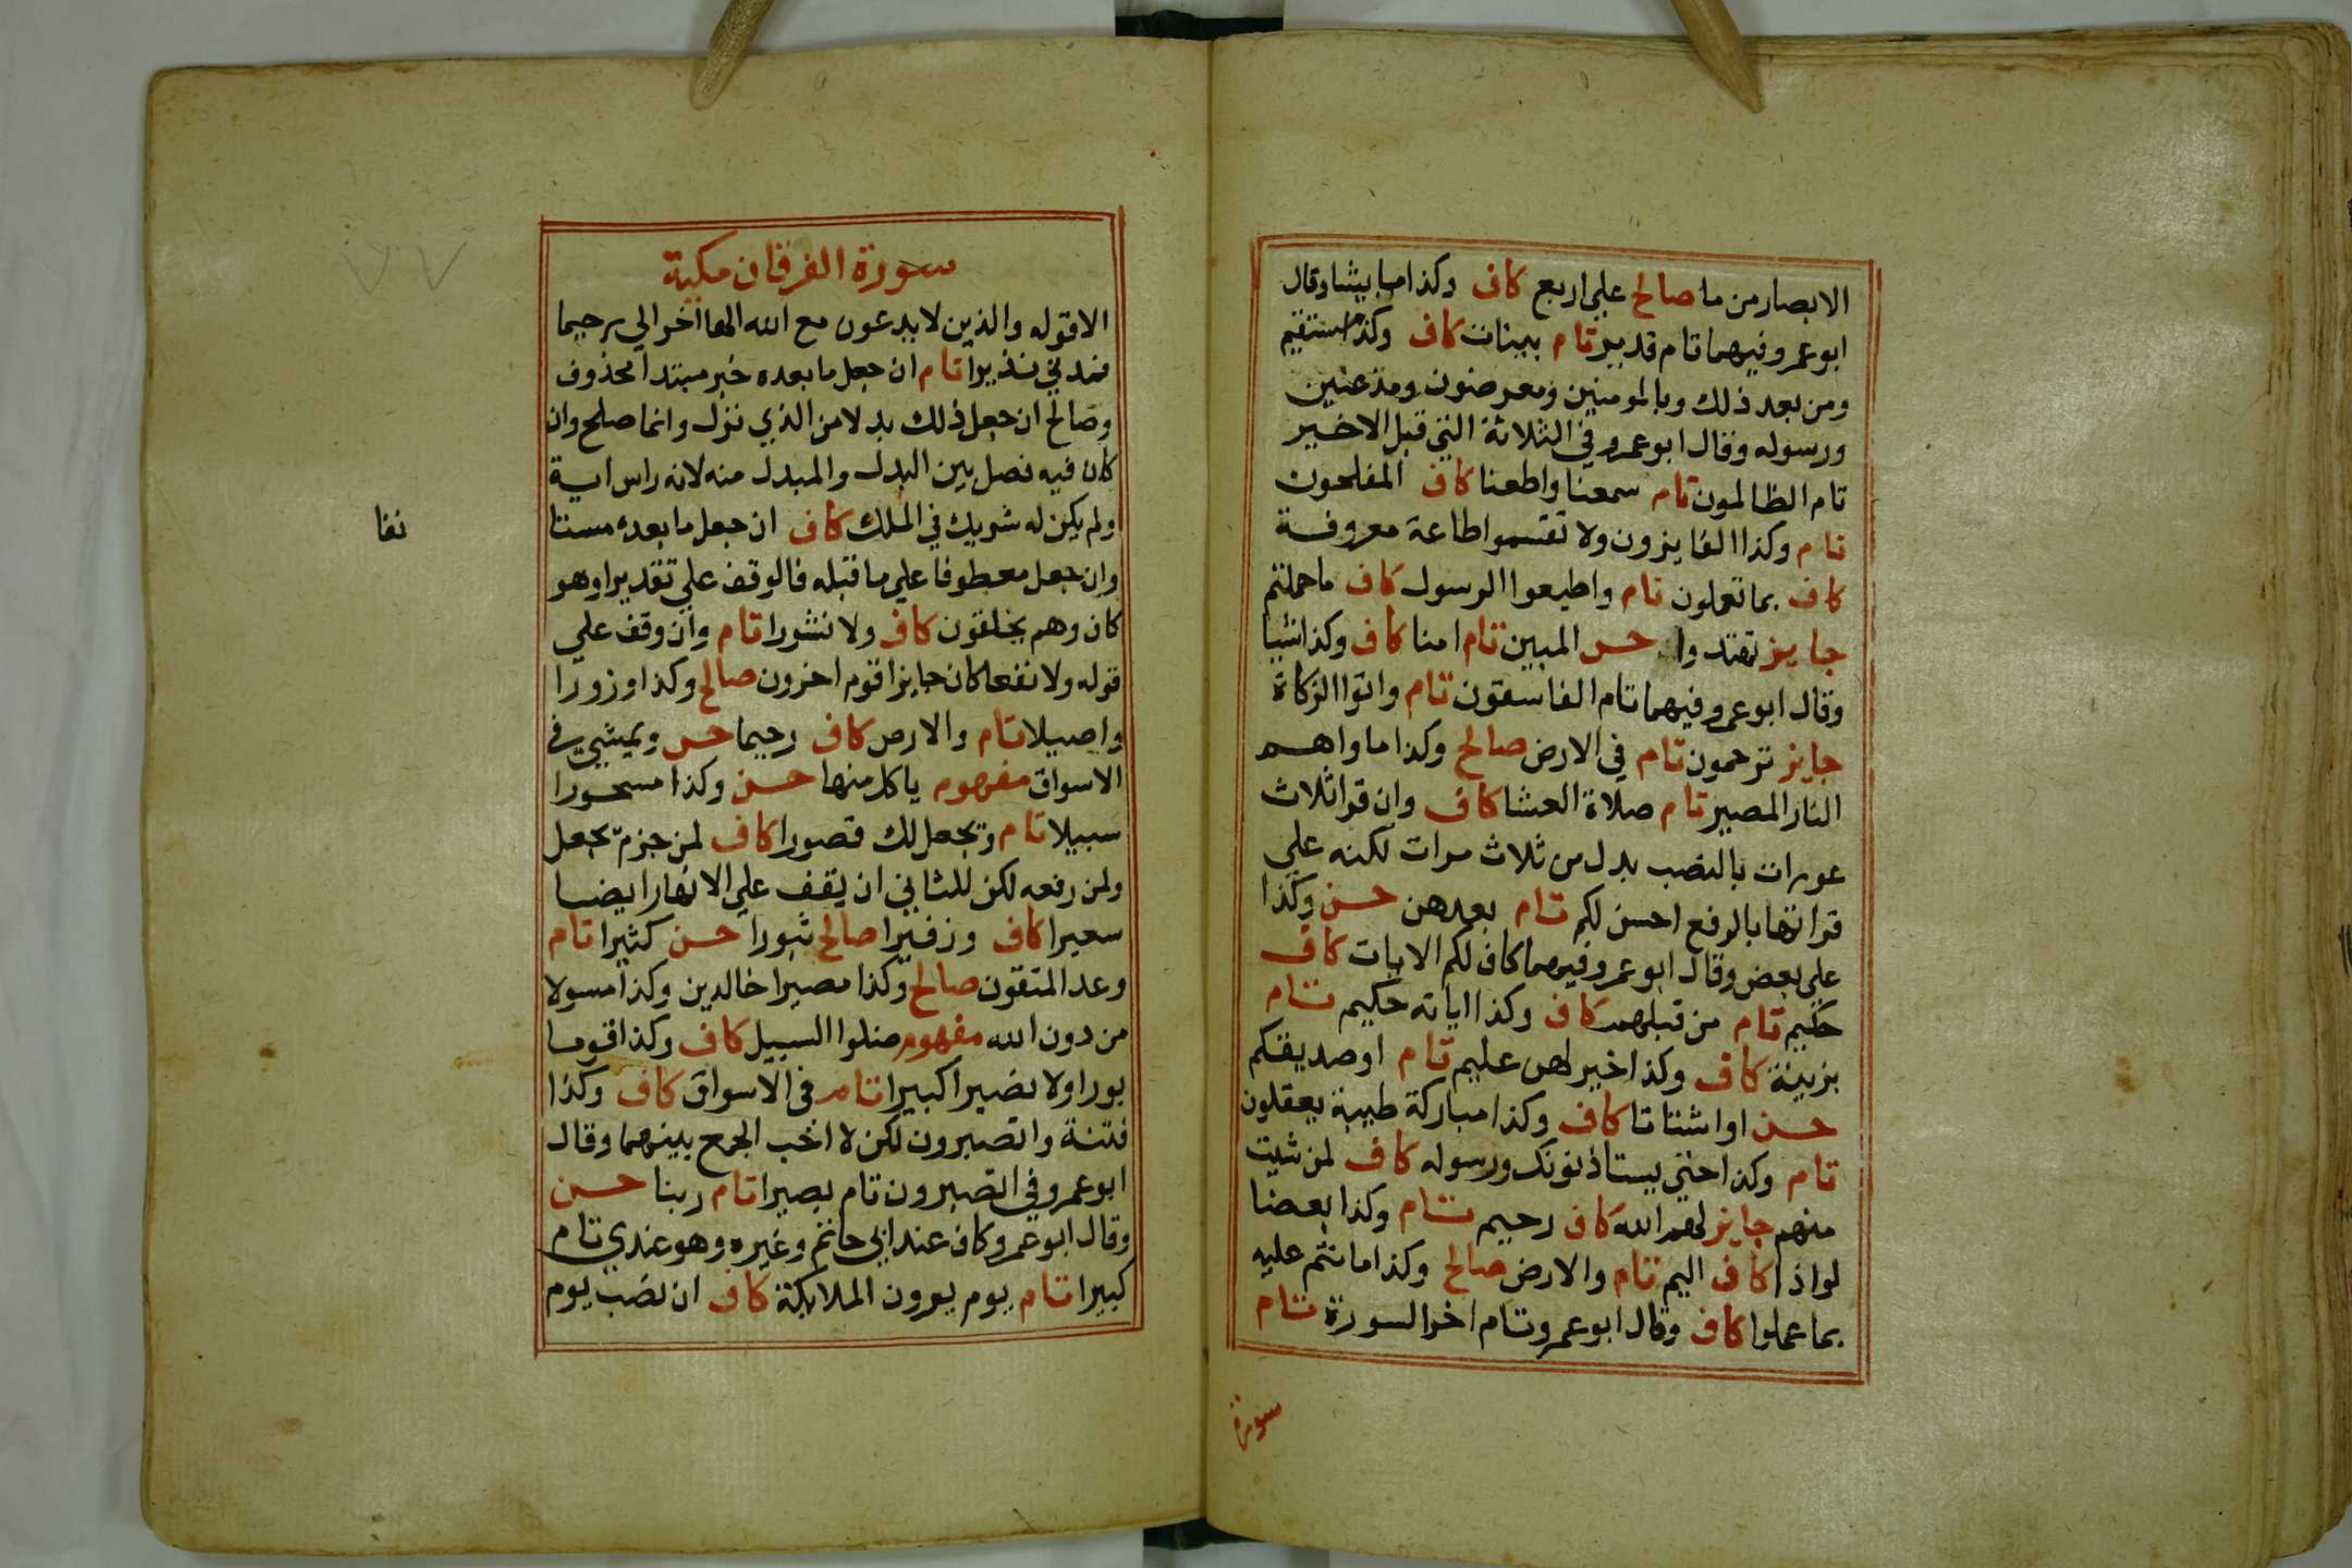 الابصار من ما صالح علي اربع كاف وكذا ما يشا وقال
ابو عمرو فيهما تام قدير تام بينات كاف وكذا مستقيم
ومن بعد ذلك وبالمومنين ومعرضون ومذعنين
ورسوله وقال ابو عمرو في الثلاثة التي قبل الاخير
تام الظالمون تام سمعنا واطعنا كاف المفلحون
تام وكذا الفايزون ولا تقسموا طاعة معروفة
كاف بما تعملون تام واطيعوا الرسول كاف ما حملتم
جايز تهتدوا حسن المبين تام امنا كاف وكذا شيا
وقال ابو عمرو فيهما تام الفاسقون تام واتوا الزكاة
جايز ترحمون تام في الارض صالح وكذا ماواهم
النار المصير تام صلاة العشا كاف وان قرا ثلاث
عورات بالنصب بدل من ثلاث مرات لكنه علي
قراتها بالرفع احسن لكم تام بعدهن حسن وكذا
علي بعض وقال ابو عمرو فيهما كاف لكم الايات كاف
حكيم تام من قبلهم كاف وكذا اياته حكيم تام
بزينة كاف وكذا خير لهن عليم تام او صديقكم
حسن او اشتاتا كاف وكذا مباركة طيبة يعقلون
تام وكذا حتي يستاذنونك ورسوله كاف لمن شيت
منهم جايز لهم الله كاف رحيم تام وكذا بعضا
لواذا كاف اليم تام والارض صالح وكذا ما انتم عليه
بما عملوا كاف وقال ابو عمرو تام اخر السورة تام
سورة
سورة الفرقان مكية
الا قوله والذين لا يدعون مع الله الها اخر الي رحيما
فمدني نذيرا تام ان جعل ما بعده خبر مبتدا محذوف
وصالح ان جعل ذلك بدلا من الذي نزل وانما صلح وان
كان فيه فصل بين البدل والمبدل منه لانه راس اية
ولم يكن له شريك في الملك كاف ان جعل ما بعده مستا
نفا
وان جعل معطوفا علي ما قبله فالوقف علي تقديرا وهو
كان وهم يخلقون كاف ولا نشورا تام وان وقف علي
قوله ولا نفعا كان جايزا قوم اخرون صالح وكذا وزورا
واصيلا تام والارض كاف رحيما حسن ويمشي في
الاسواق مفهوم ياكل منها حسن وكذا مسحورا
سبيلا تام ويجعل لك قصورا كاف لمن جزم يجعل
ولمن رفعه لكن للثاني ان يقف علي الانهار ايضا
سعيرا كاف وزفيرا صالح ثبورا حسن كثيرا تام
وعد المتقون صالح وكذا مصيرا خالدين وكذا مسولا
من دون الله مفهوم ضلوا السبيل كاف وكذا قوما
بورا ولا نصيرا كبيرا تام في الاسواق كاف وكذا
فتنة واتصبرون لكن لا احب الجمع بينهما وقال
ابو عمرو في اتصبرون تام بصيرا تام ربنا حسن
وقال ابو عمرو كاف عند ابي حاتم وغيره وهو عندي تام
كبيرا تام يوم يرون الملايكة كاف ان نصب يوم